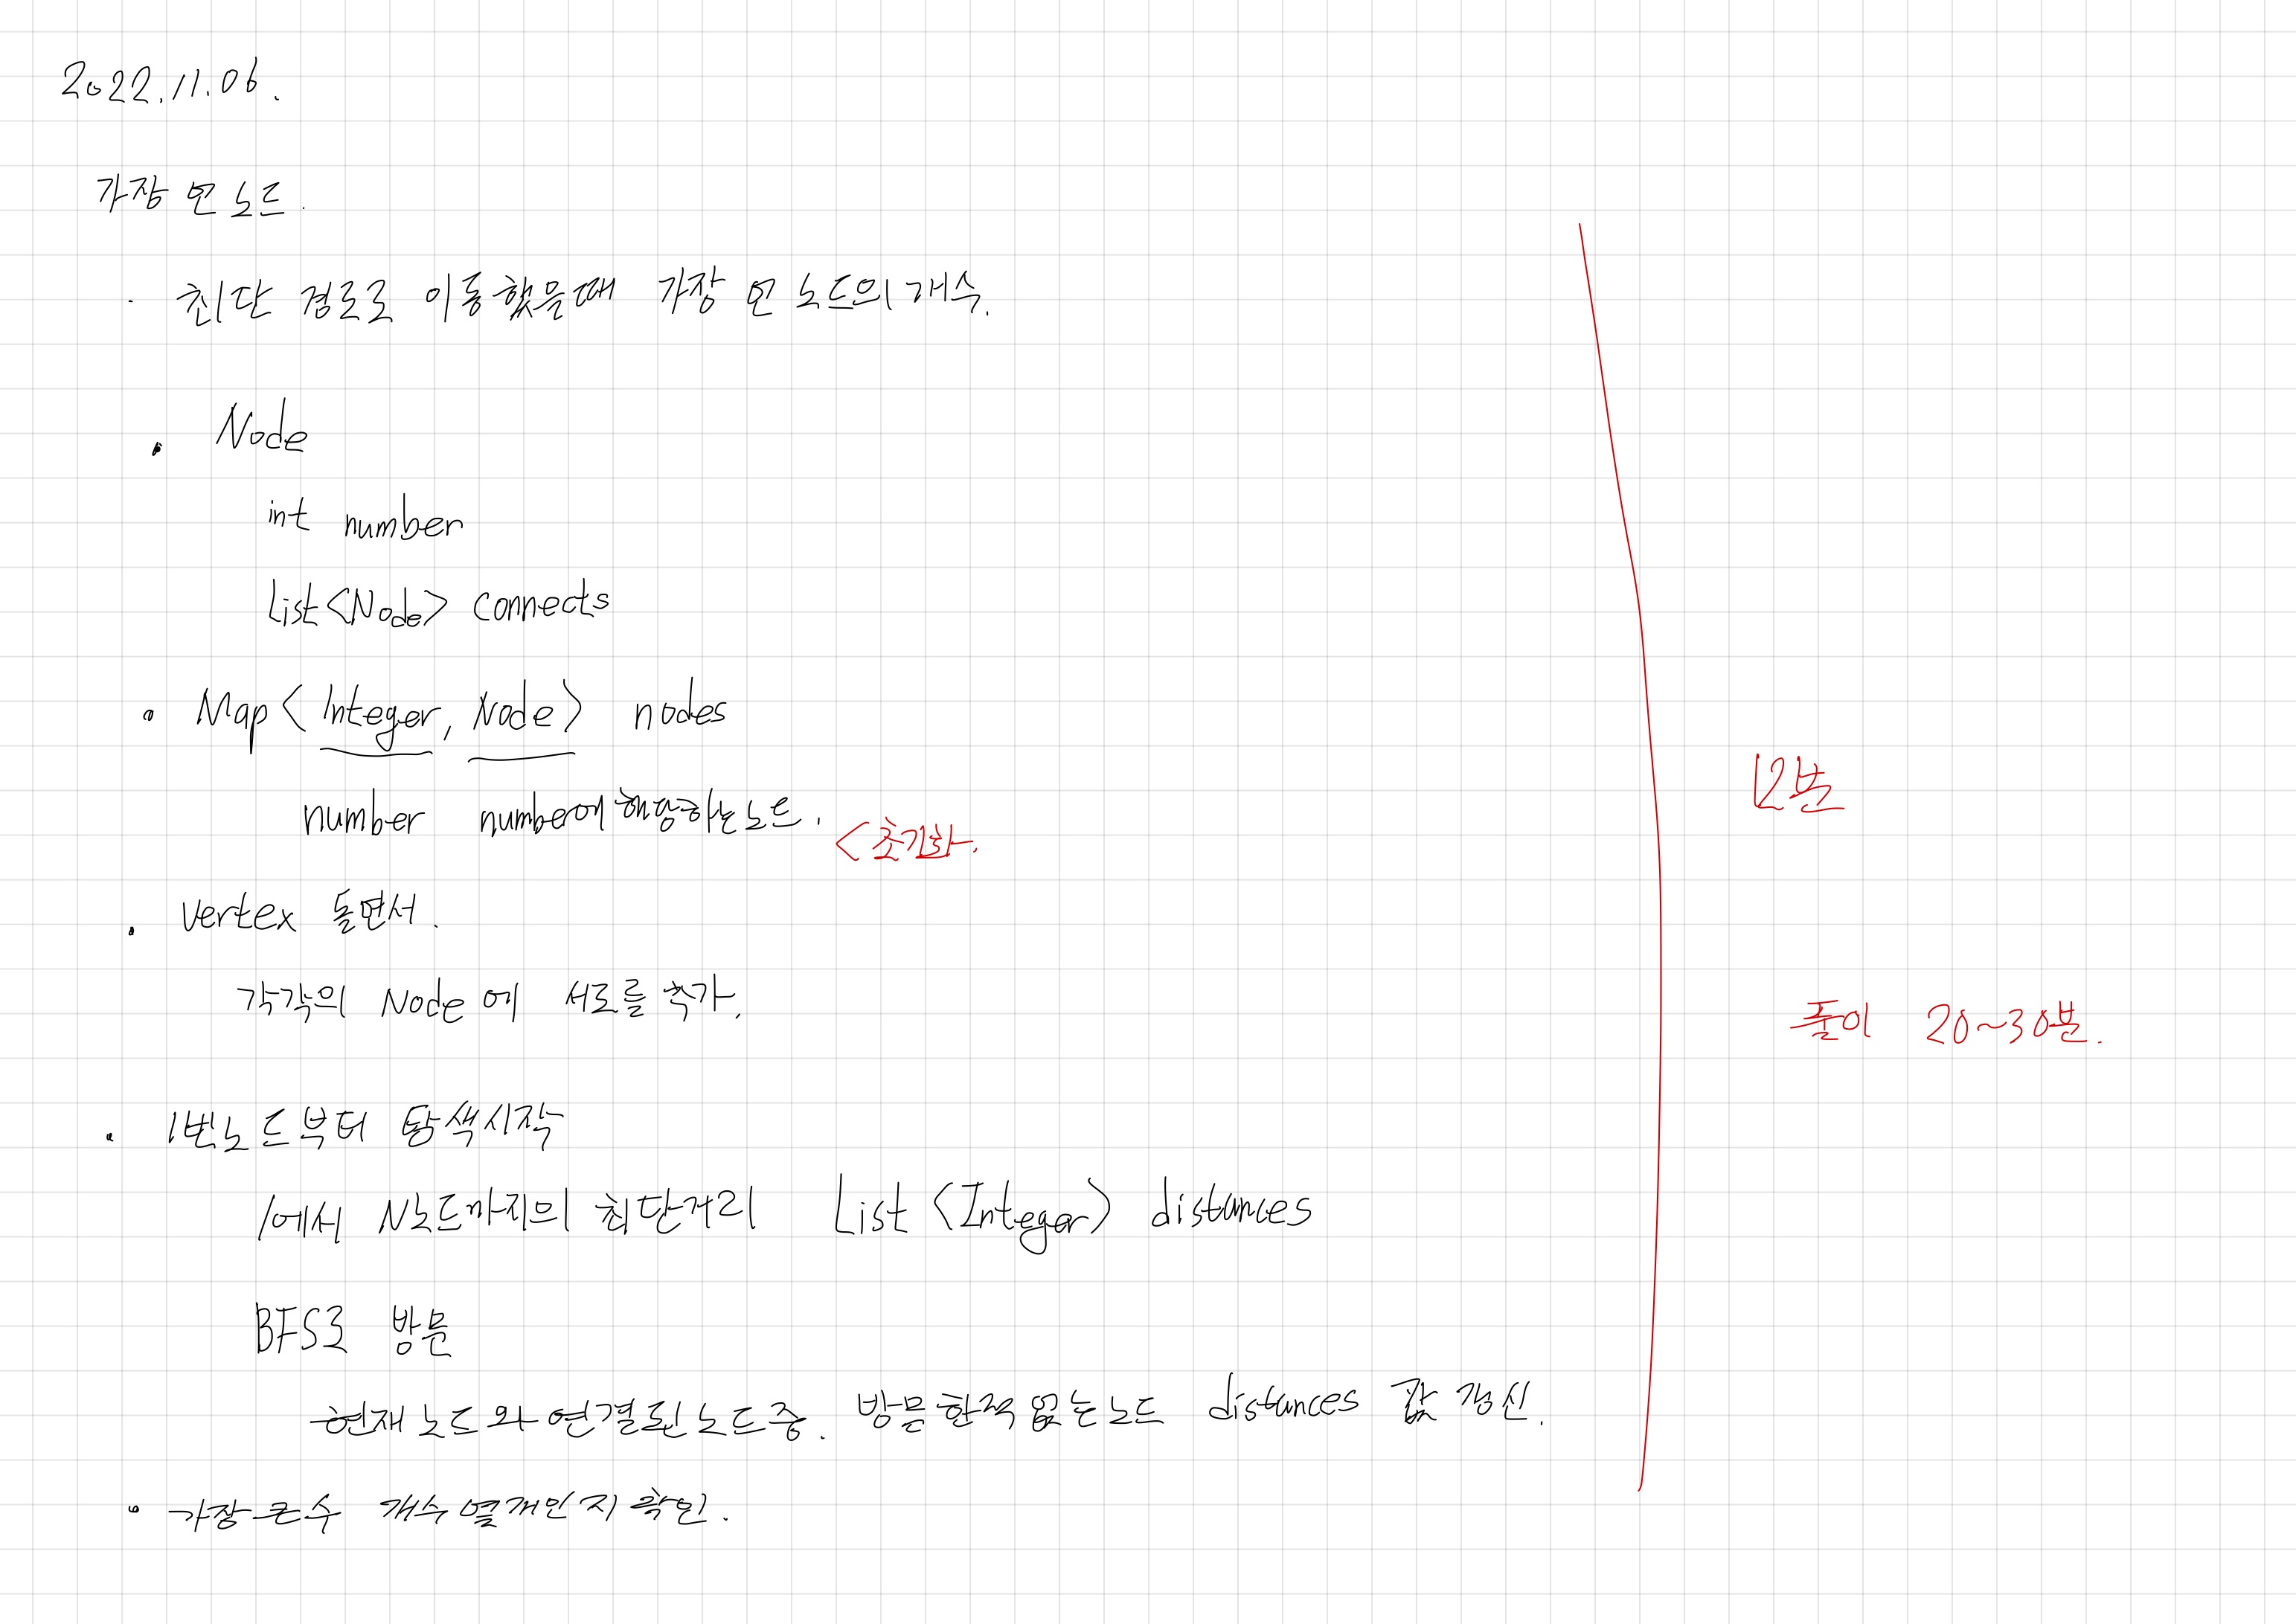 2022.11.06.
가장 먼 노드.
· 최단 경로로 이동했을때 가장 먼 노드의 개수.
· Node
int number
List<Node> connects
· Map<Integer, Node> nodes
number number에 해당하는 노드.
< 초기화.
· vertex 돌면서.
각각의 Node에 서로를 추가.
· 1번노드부터 탐색시작
1에서 N노드까지의 최단거리 List<Integer> distances
BFS로 방문
현재 노드와 연결된 노드 중. 방문한적 없는 노드 distances 값 갱신.
· 가장 큰수 개수 몇개인지 확인.
12분
풀이 20~30분.